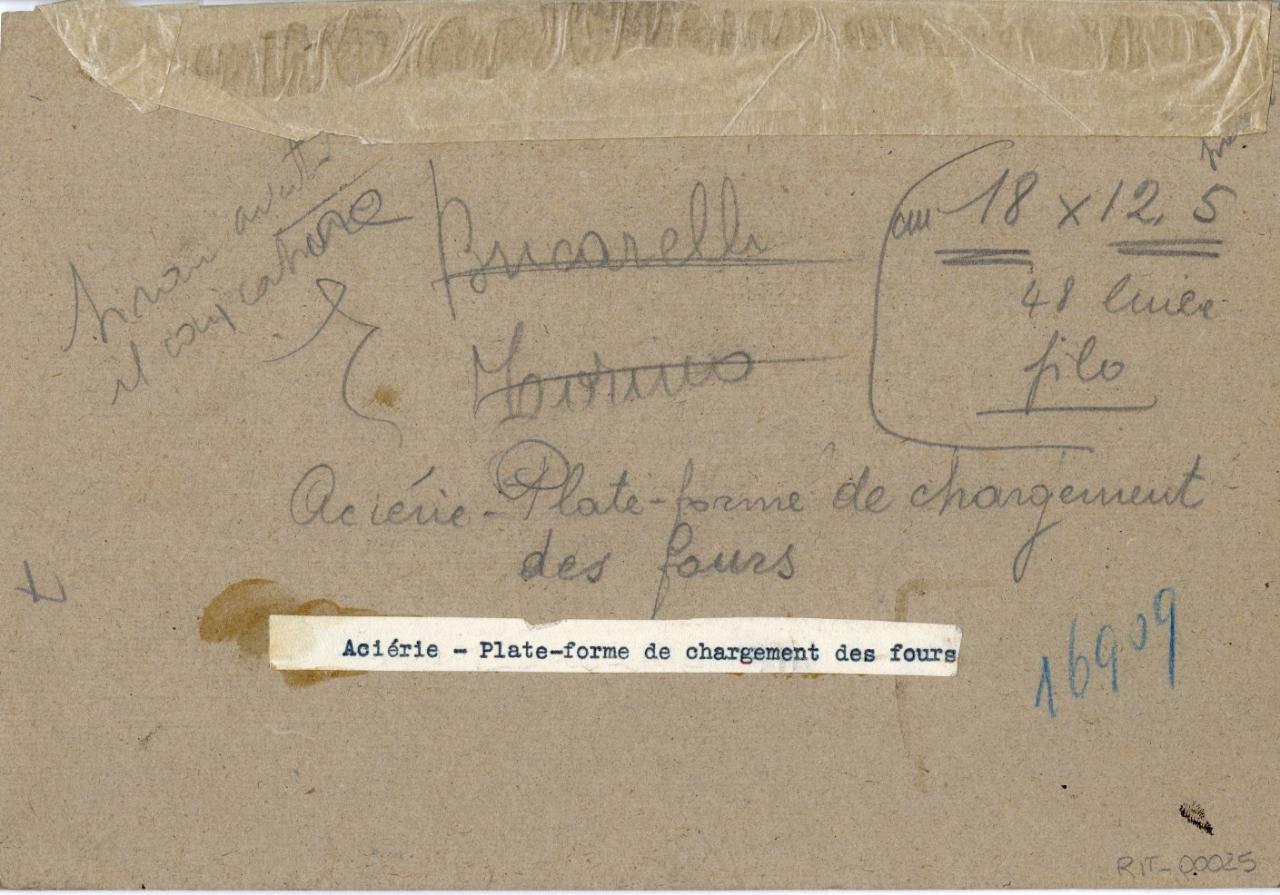 Bucarelli
cm 18 x 12,5
48 linee
filo
Torino
Aciérie - Plate-forme de chargement
des fours
Aciérie - Plate-forme de chargement des fours
16909
RIT-00025